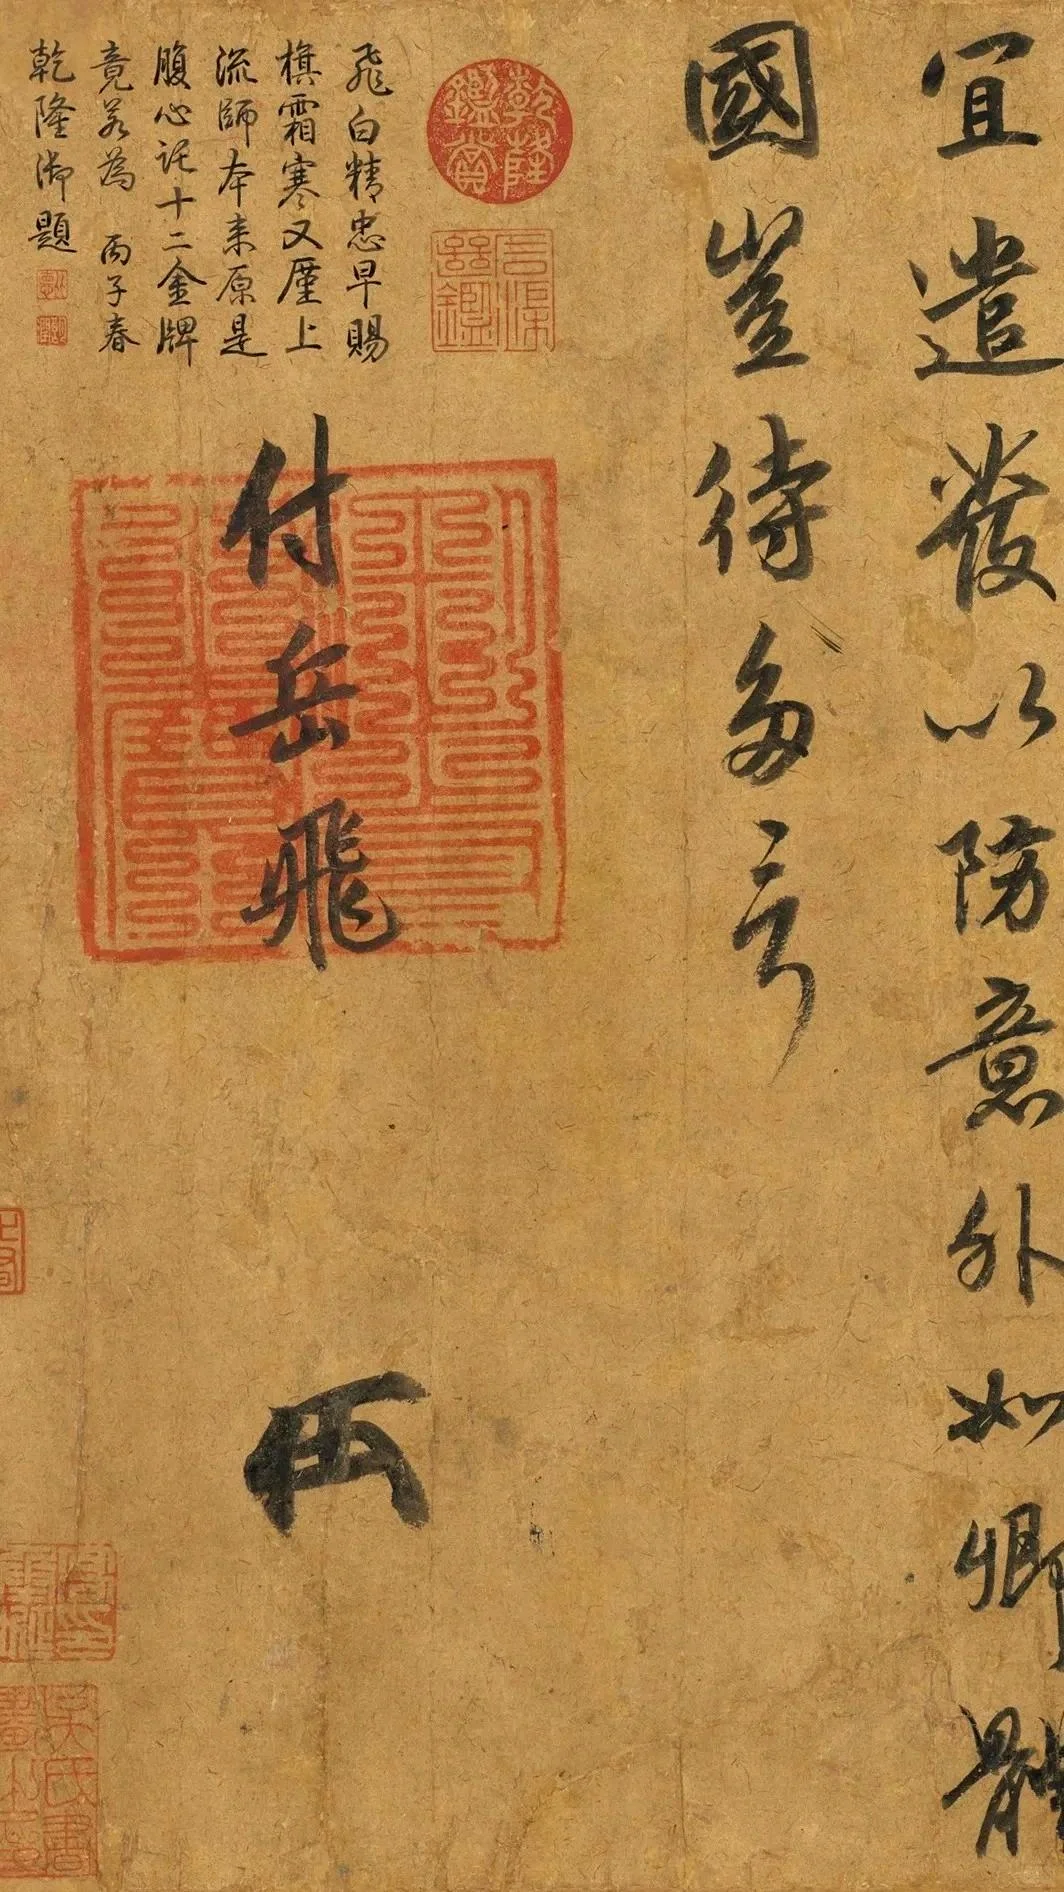 宜遣發以防意外如卿體
國豈待多言
付岳飛
飛白精忠早賜
旗霜寒又廑上
流師本来原是
腹心託十二金牌
竟若為 丙子春
乾隆御題
乾隆鑑賞
吳氏書